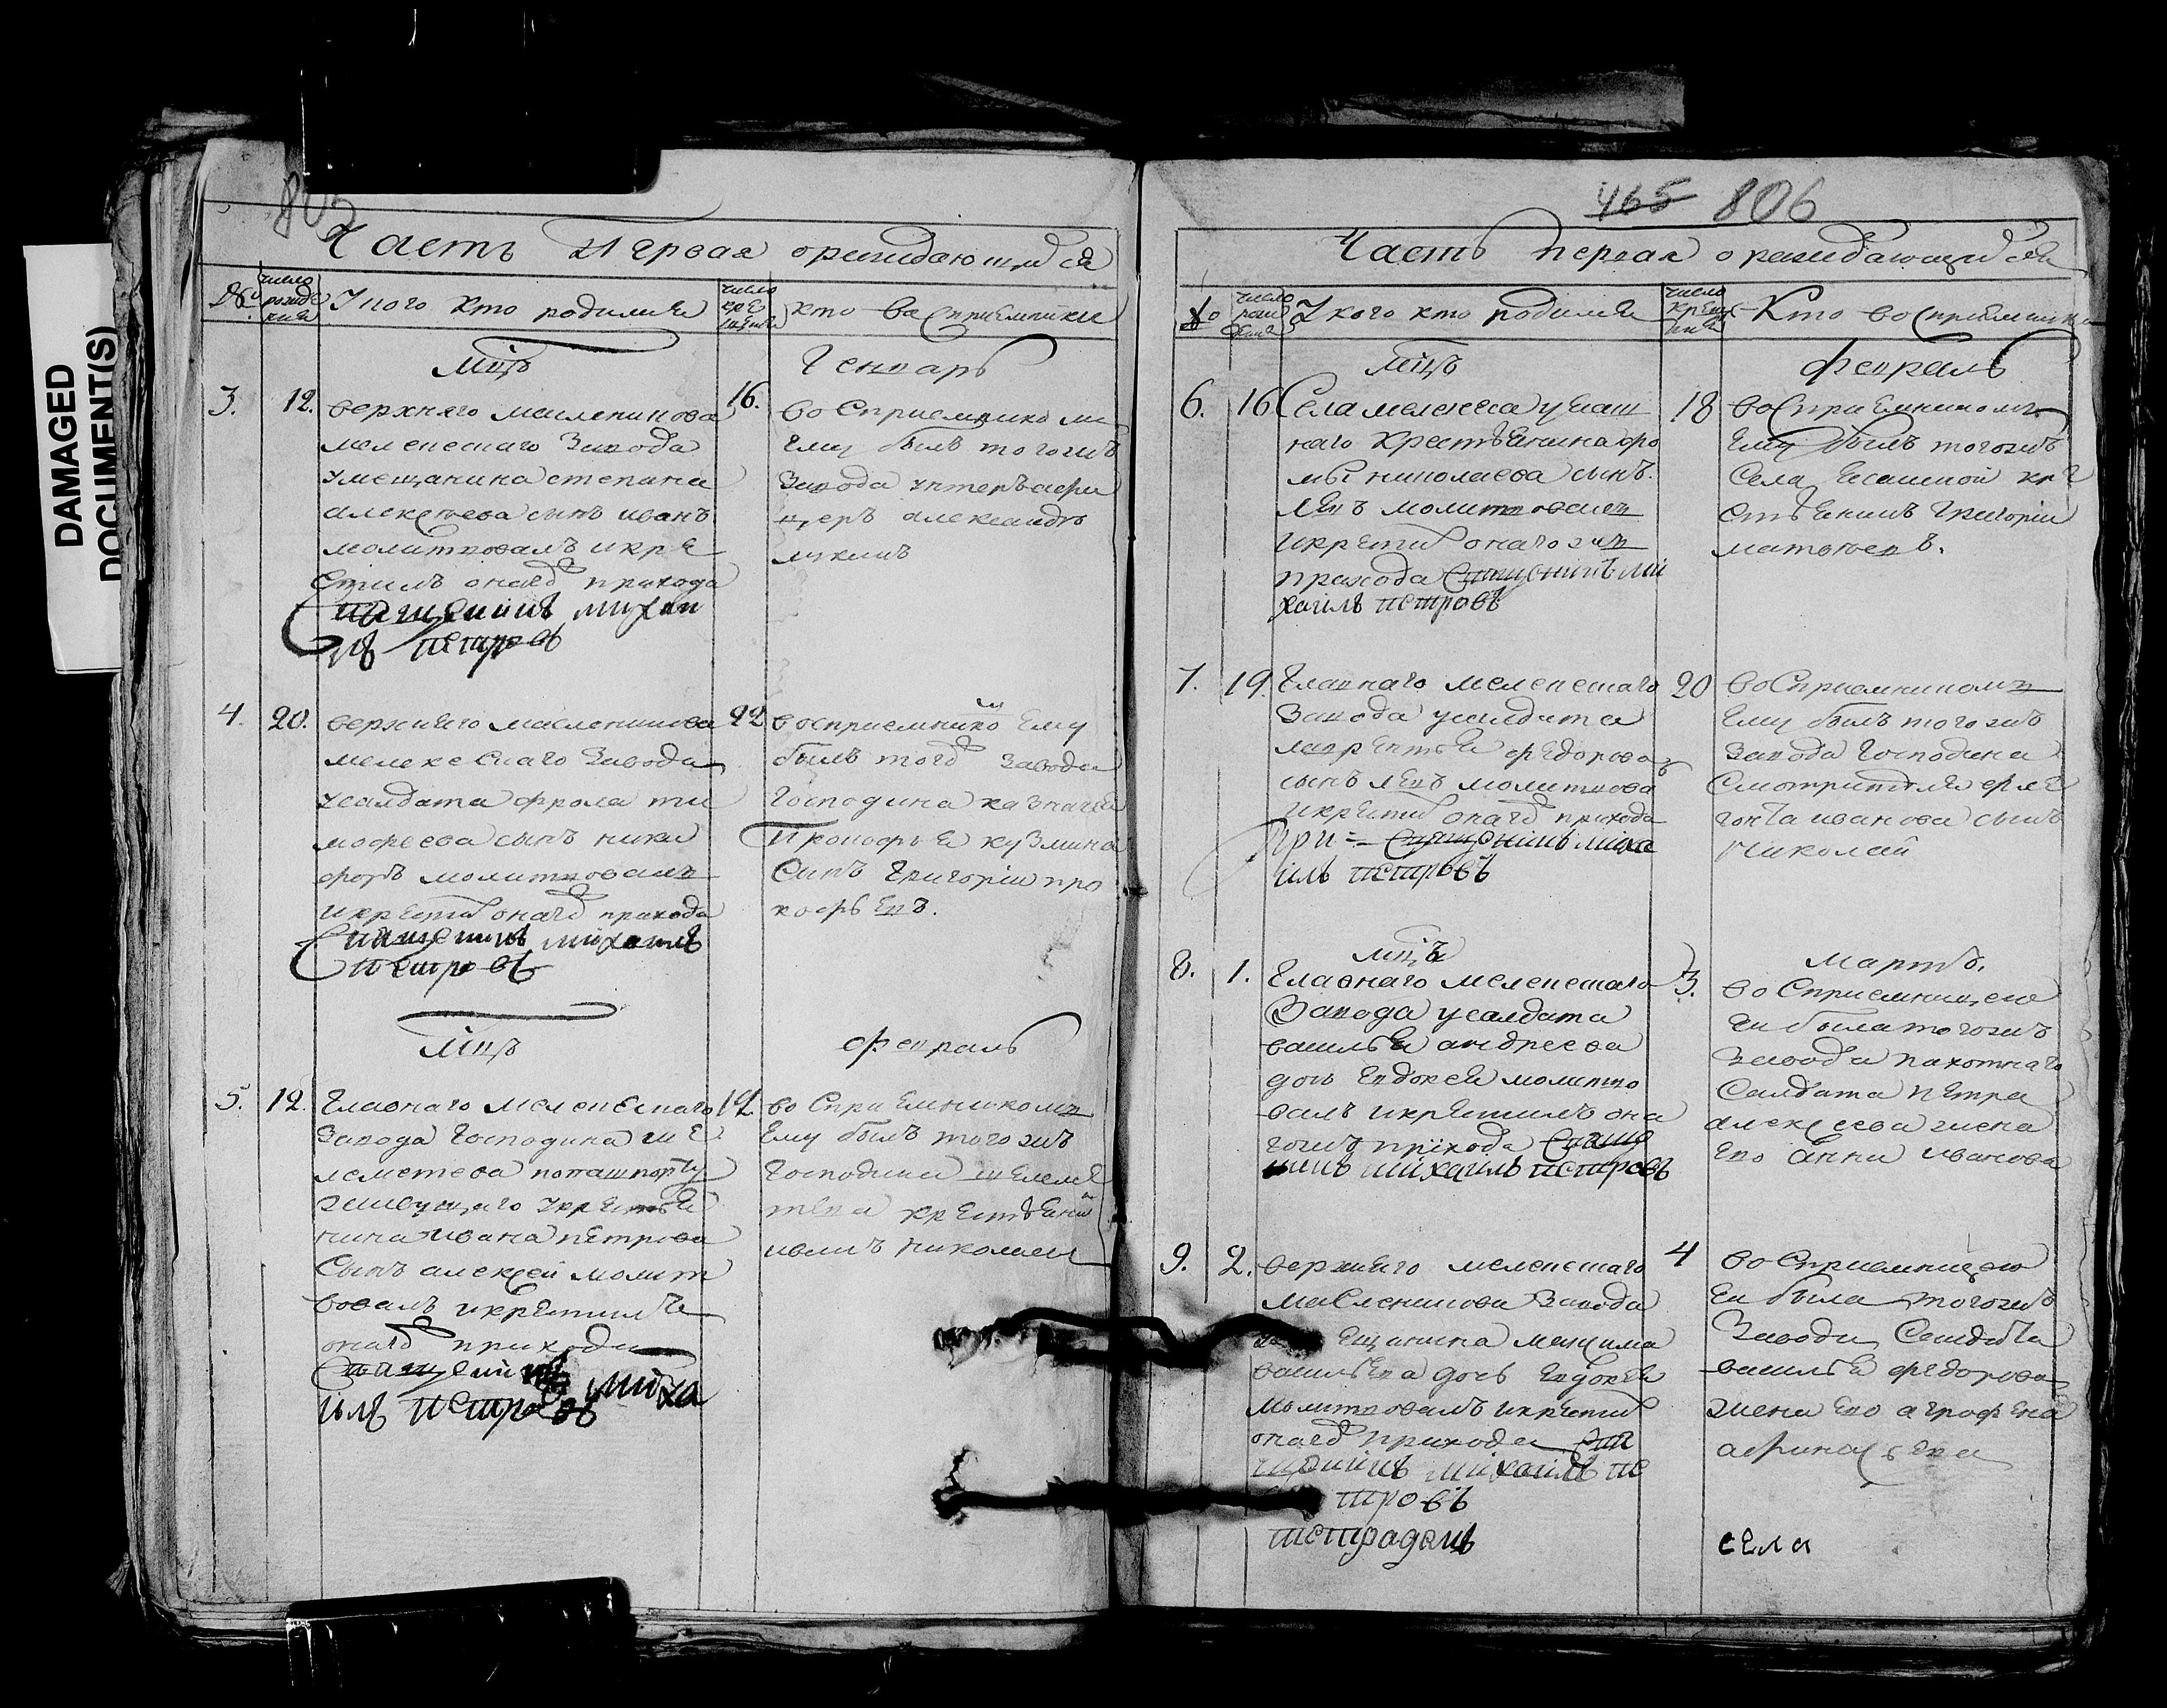 DAMAGED
DOCUMENT(S)
805
Часть Первая ораждающихся
№
число рожде ния
У ково кто родился
число кре щения
кто восприемники
мцъ
Генварь
3.
12.
верхняго масленикова
мелекескаго Завода
умещанина степана
алексеева сынъ иванъ
молитвовалъ икре
стилъ онаго прихода
Священникъ михаи
лъ петровъ
16.
во Сприемнико мъ
Ему былъ тогожъ
Завода унтеръ афи
церъ александръ
4.
20.
верхняго масленикова
мелекескаго Завода
усалдата фрола ти
мофеева сынъ ники
форъ молитвовалъ
икрестил онаго прихода
Священникъ михаилъ
петровъ
22
восприемникомъ Ему
былъ того Завода
Господина казначея
Прокофья кузмина
Сынъ Григорий про
кофьевъ.
мцъ
февраль
5.
12.
Главнаго мелекескаго
Завода Господина ше
леметева попашпорту
живущаго укрестья
нина ивана петрова
Сынъ алексей молит
вовалъ икрестилъ
онаго прихода
Священникъ миха
илъ петровъ
12
во Сприемникомъ
Ему былъ тогожъ
Господина шелеме
тева крестьянинъ
иванъ николаевъ
465 806
Часть первая ораждающихся
№
число рож дения
У кого кто родился
число креще ния
Кто восприемники
мцъ
февраль
6.
16
Села мелекеса уясаш
наго крестьянина фо
мы николаева сынъ
левъ молитвовалъ
икрестил онагожъ
прихода Священникъ ми
хаилъ петровъ
18
воСприемникомъ
Ему былъ тогожъ
Села ясашной кре
стьянинъ Григорий
матвеевъ.
7.
19.
Главнаго мелекескаго
Завода усалдата
лаврентья федорова
сынъ левъ молитвовалъ
икрестил онаго прихода
При = Священникъ миха
илъ петровъ
20
воСприемникомъ
Ему былъ тогожъ
Завода Господина
Смотрителя фле
гонта иванова сынъ
николай
мцъ
мартъ.
8.
1.
Главнаго мелекескаго
Завода усалдата
василья андреева
дочь Евдокея молитво
валъ икрестилъ она
гожъ прихода Священ
никъ михаилъ петровъ
3.
во Сприемницею
Ей была тогожъ
Завода пахотнаго
Салдата петра
алексеева жена
Ево анна иванова
9.
2.
верхняго мелекескаго
Масленикова Завода
ещанина максима
васильева дочь Евдокея
молитвовалъ икрестил
онаго прихода Свя
щенникъ михаилъ пе
тровъ
тетрадомъ
4
во Сприемницею
Ей была тогожъ
Завода Салдата
василья федорова
жена Ево аграфена
афанасьева
села